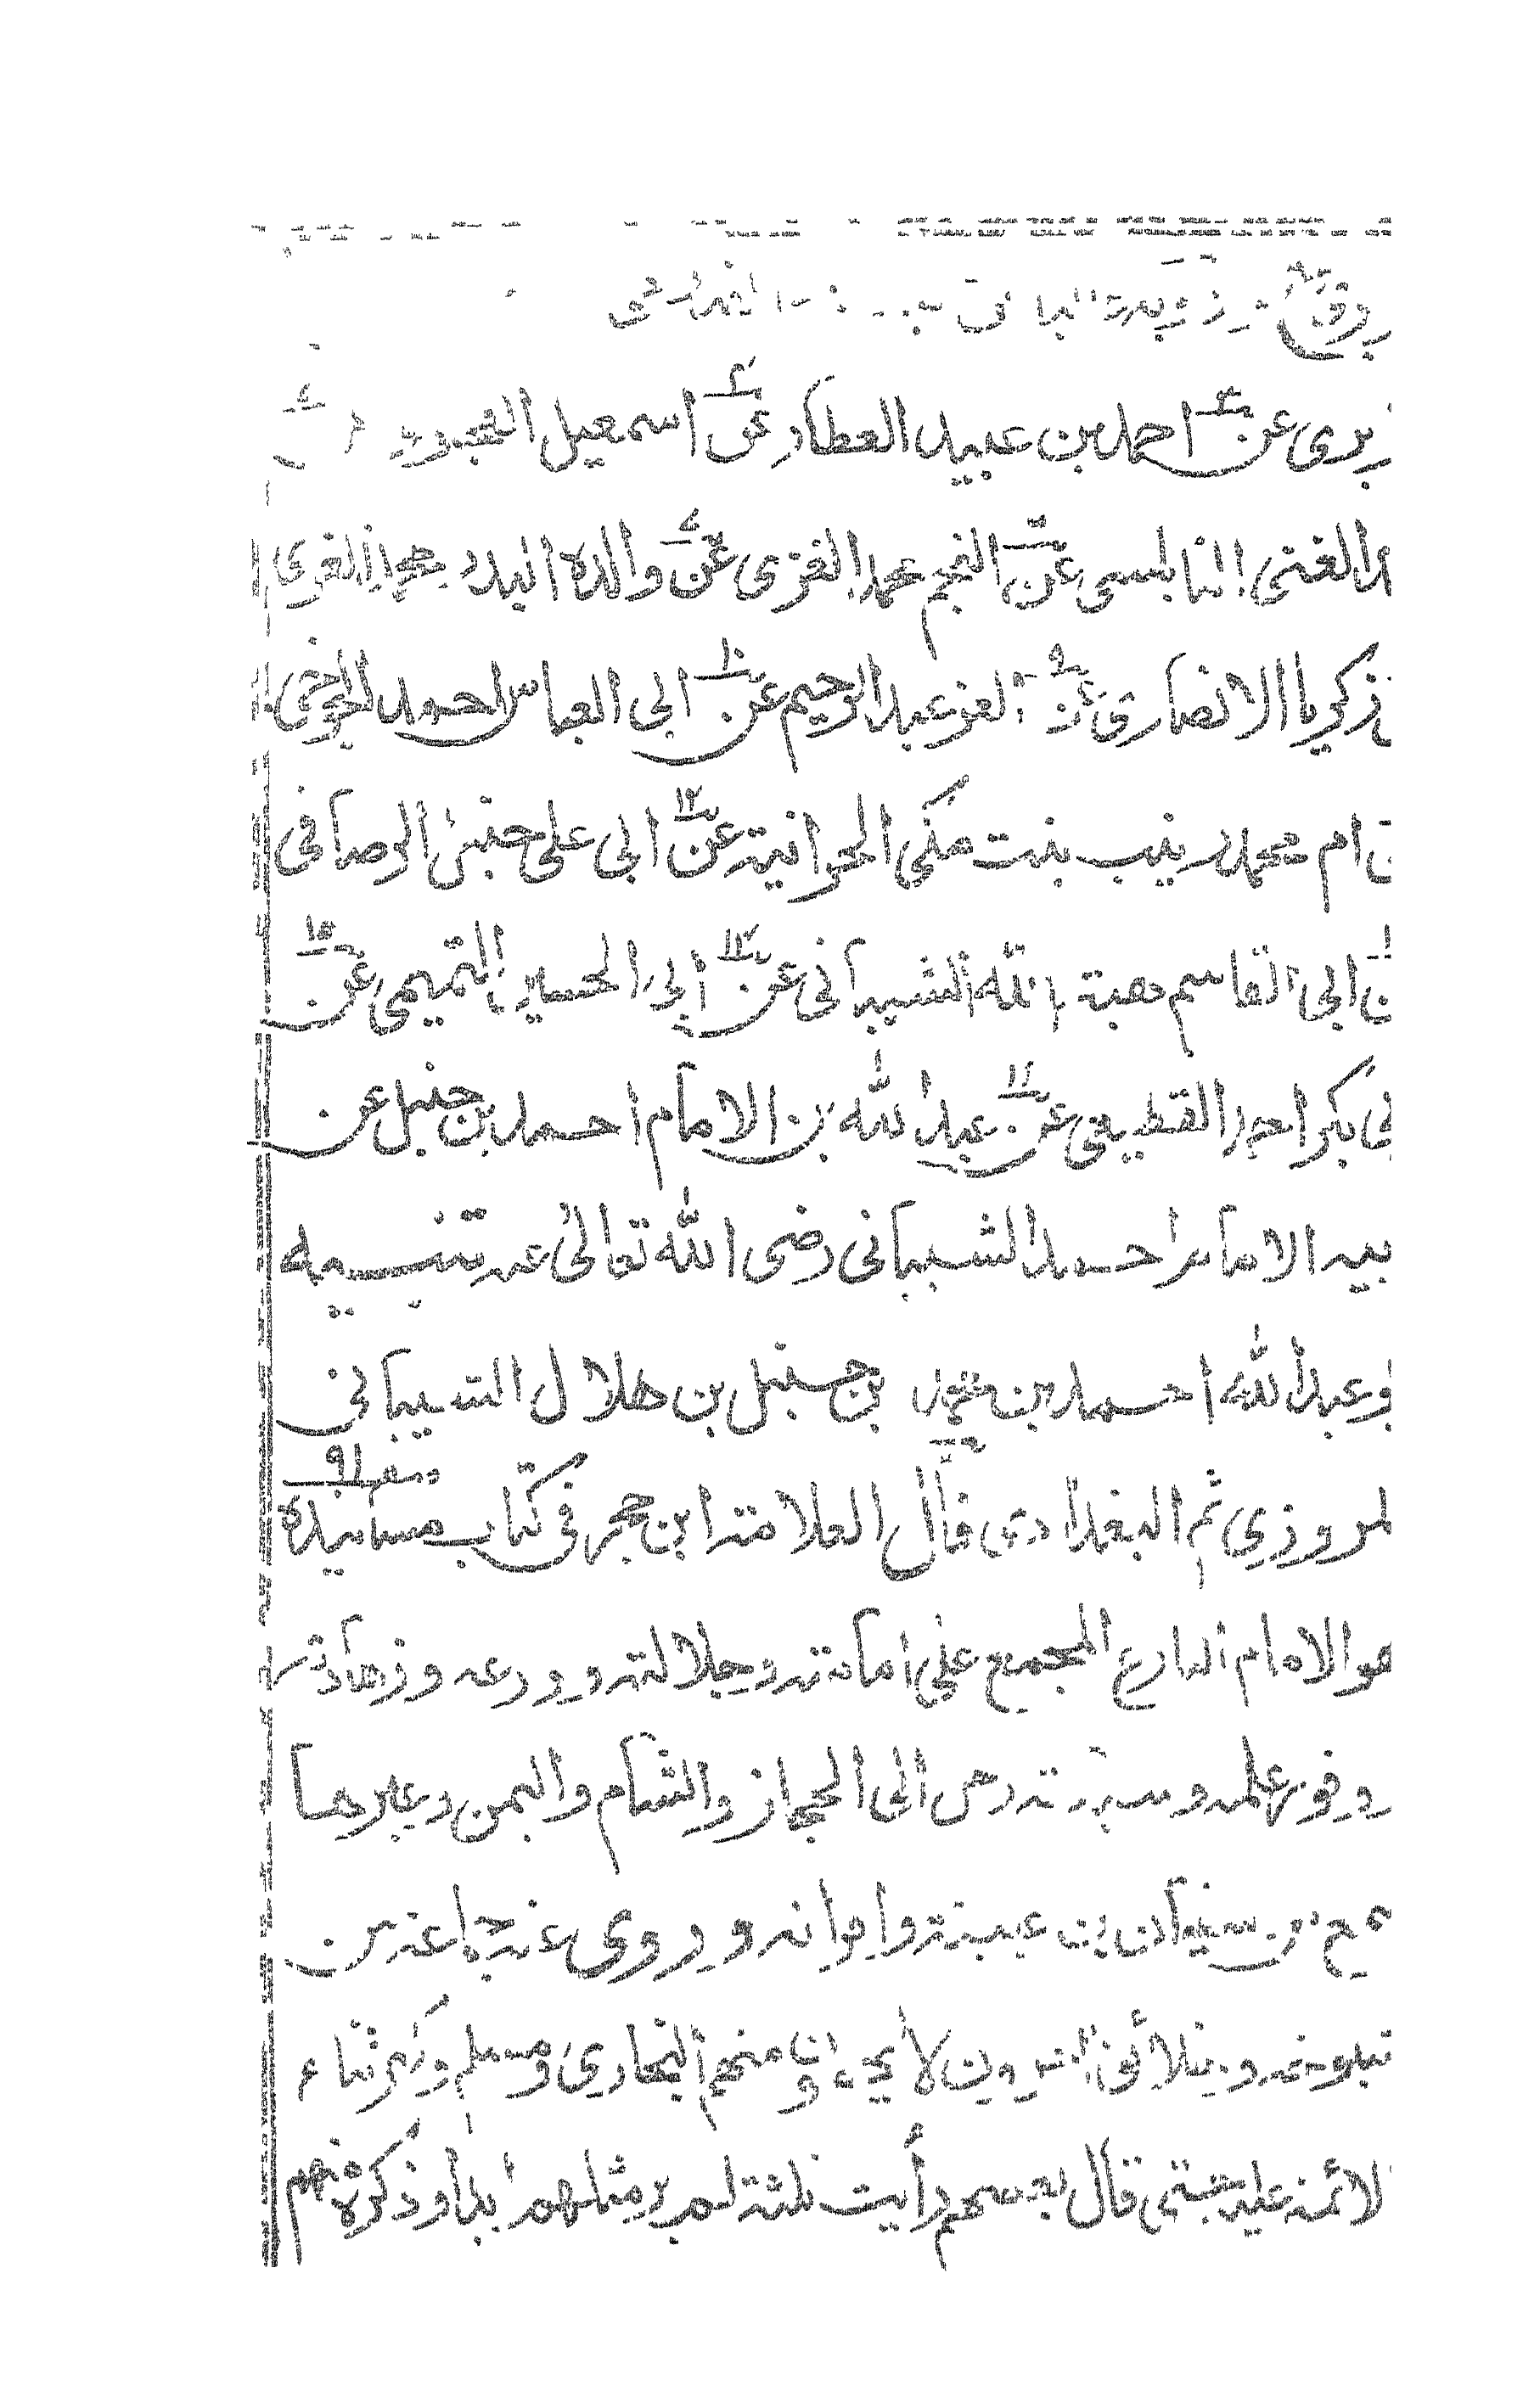 زبرى عن احمد بن عبيد العطار عن اسمعيل
دالغنى النابلسى عن النجم محمد الغزى عن والده البدر محمد الغزى
ن زكريا الانصارى عن العز عبد الرحيم عن ابى العباس احمد الجوخى
ن ام محمد زينب بنت مكى الحرانية عن ابى على حنبل الرصافى
ن ابى القاسم هبة الله الشيبانى عن ابى الحسين التميمى عن
بى بكر احمد القطيعى عن عبد الله بن الامام احمد بن حنبل عن
بيه الامام احمد الشيبانى رضى الله تعالى عنه تنبيه
بو عبد الله احمد بن محمد بن حنبل بن هلال الشيبانى
لمروزي ثم البغدادي قال العلامة ابن حجر فى كتاب مسانيده
هو الامام البارع المجمع على امامته وجلالته و ورعه وزهادته
و وفور علمه الى الحجاز والشام واليمن وغيرها
سمع من سفيان بن عيينة واقرانه و روى عنه جماعة من
شيوخه وخلائق اخرون لا يحصون منهم البخارى ومسلم وكثر ثناء
لائمة عليه حتى قال بعضهم رأيت ثلثة لم ير مثلهم ابدا وذكره منهم